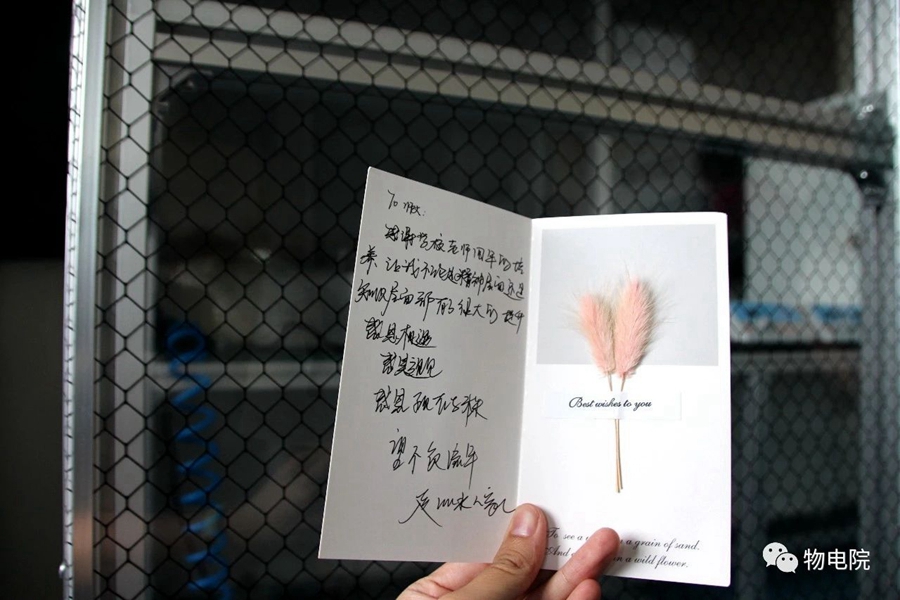 To
感谢学校老师四年的培
养 让我不论是精神层面还是
知识层面都有很大的提升
感恩相遇
感恩遇见
感恩现在
望不负流年
Best wishes to you
To see a a grain of sand.
And a wild flower.
物电院